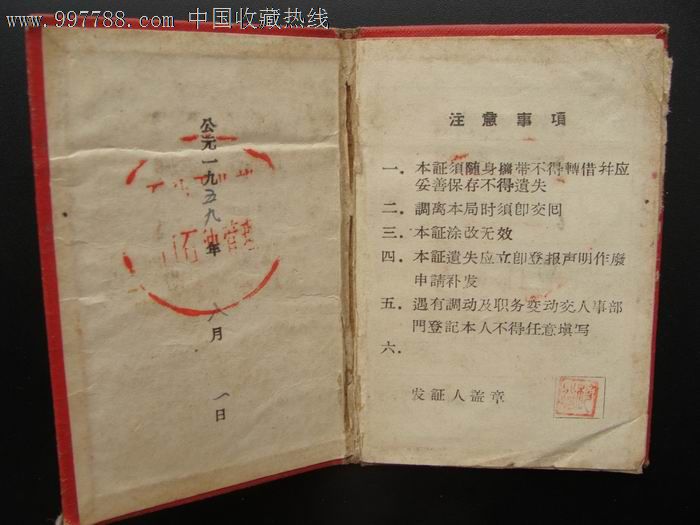 www.997788.com 中国收藏热线
公元一九五九年 八月 一日
石油管
注意事項
一．本証須随身攜带不得轉借幷应
妥善保存不得遺失
二．調离本局时須卽交囘
三．本証涂改无效
四．本証遺失应立卽登报声明作廢
申請补发
五．遇有調动及职务变动交人事部
門登記本人不得任意塡写
六．
发証人盖章